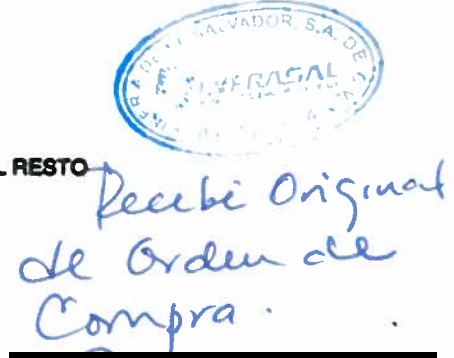 DE EL SALVADOR, S.A. DE C.V.
L RESTO
Recibi Original
de Orden de
Compra.